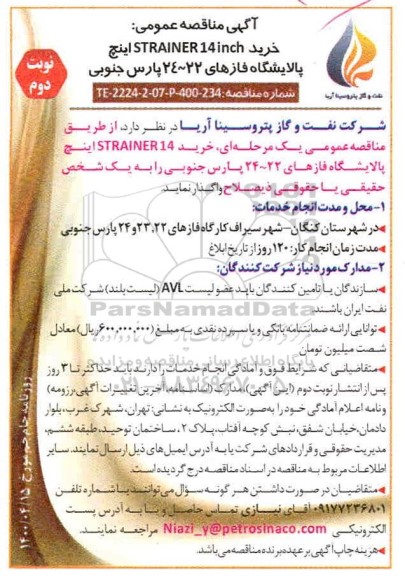 آگهی مناقصه عمومی:
خرید STRAINER 14 inch اینچ
پالایشگاه فازهای ۲۲~۲٤ پارس جنوبی
شماره مناقصه: TE-2224-2-07-P-400-234
نوبت
دوم
نفت و گاز پتروسینا آریا
شرکت نفت و گاز پتروسینا آریا در نظر دارد، از طریق
مناقصه عمومی یک مرحله‌ای، خرید STRAINER 14 اینچ
پالایشگاه فازهای ۲۲~۲۴ پارس جنوبی را به یک شخص
حقیقی یا حقوقی ذیصلاح واگذار نماید.
۱- محل و مدت انجام خدمات:
در شهرستان کنگان – شهر سیراف کارگاه فازهای ۲۲، ۲۳ و ۲۴ پارس جنوبی
مدت زمان انجام کار: ۱۲۰ روز از تاریخ ابلاغ
۲- مدارک مورد نیاز شرکت کنندگان:
سازندگان یا تامین کنندگان باید عضو لیست AVL (لیست بلند) شرکت ملی
نفت ایران باشند.
توانایی ارائه ضمانتنامه بانکی و یا سپرده نقدی به مبلغ (۶۰۰,۰۰۰,۰۰۰ ریال) معادل
شصت میلیون تومان
متقاضیانی که شرایط فوق و آمادگی انجام خدمات را دارند باید حداکثر تا ۳ روز
پس از انتشار نوبت دوم (این آگهی)، مدارک (اساسنامه، آخرین تغییرات آگهی، رزومه)
و نامه اعلام آمادگی خود را به‌صورت الکترونیک به نشانی: تهران، شهرک غرب، بلوار
دادمان، خیابان شفق، نبش کوچه آفتاب، پلاک ۲، ساختمان توحید، طبقه ششم،
مدیریت حقوقی و قراردادهای شرکت یا به آدرس ایمیل‌های ذیل ارسال نمایند. سایر
اطلاعات مربوط به مناقصه در اسناد مناقصه درج گردیده است.
متقاضیان در صورت داشتن هر گونه سؤال می‌توانند با شماره تلفن
۰۹۱۷۷۲۳۶۸۰۱ آقای نیازی تماس حاصل و یا به آدرس پست
الکترونیکی Niazi_y@petrosinaco.com مراجعه نمایند.
هزینه چاپ آگهی بر عهده برنده مناقصه می‌باشد.
روزنامه جام جم مورخ ۱۴۰۰/۰۴/۱۵
ParsNamadData
پایگاه اطلاع رسانی مناقصه و مزایده